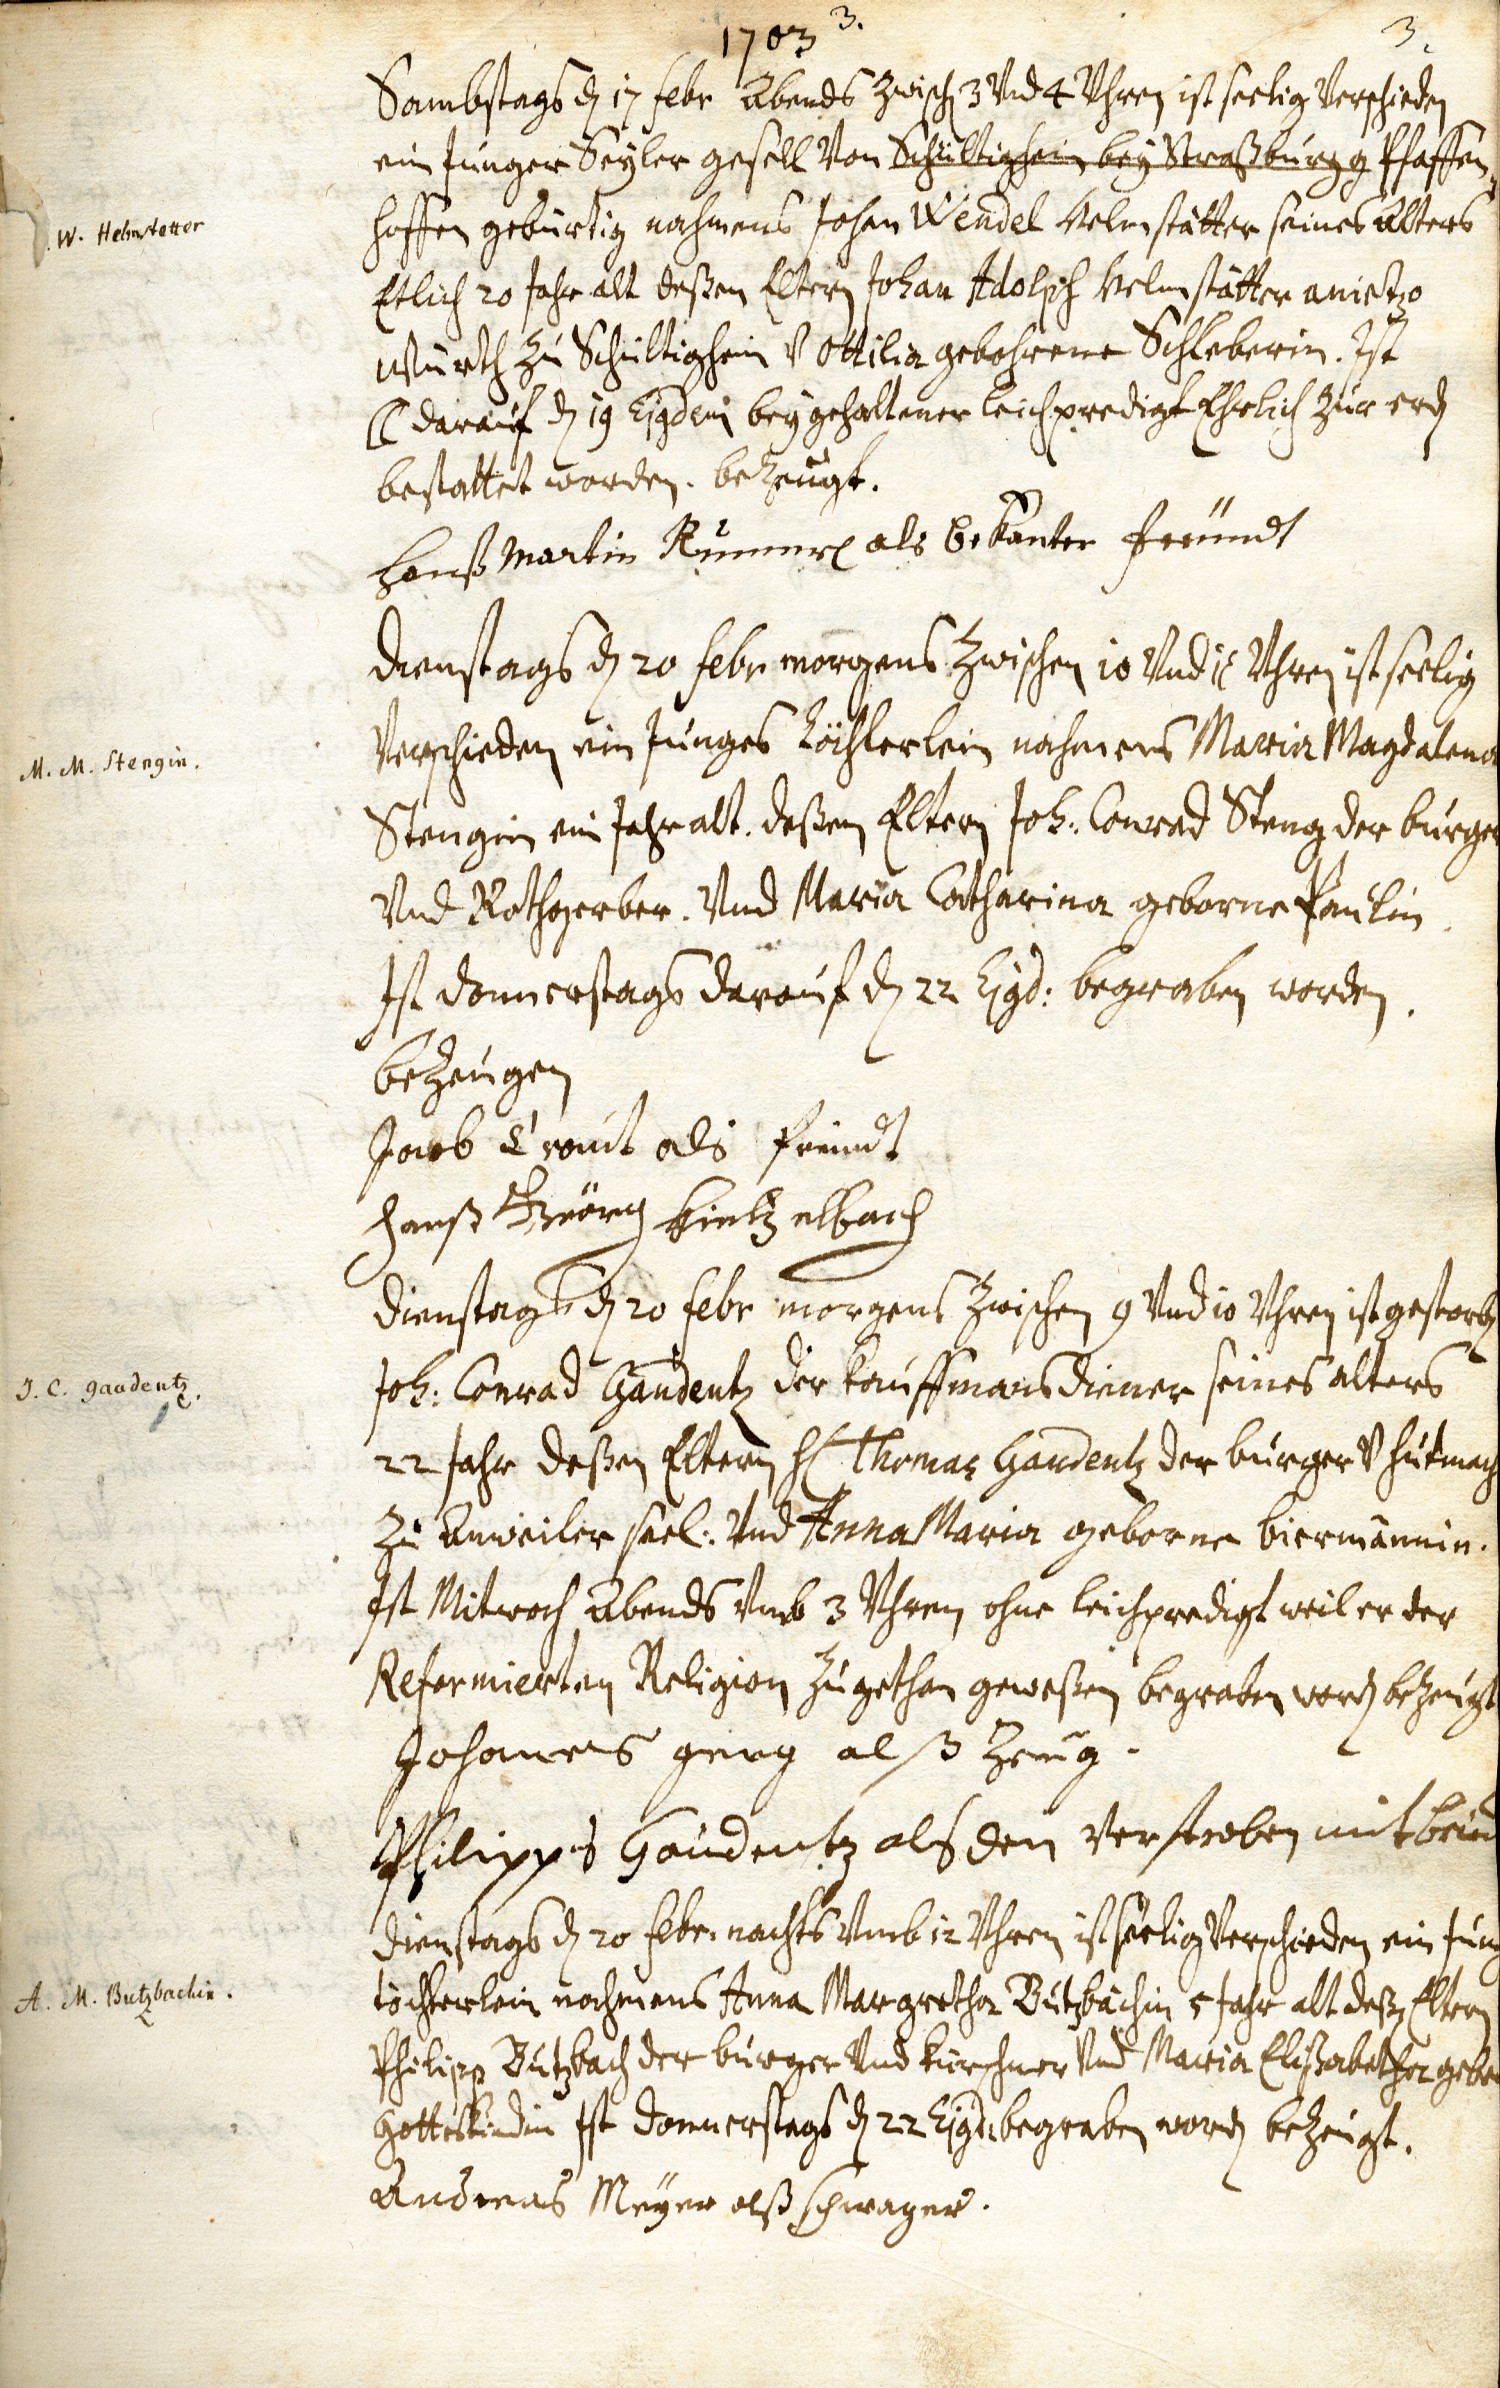 1703 3. 3.
Sambstags dn 17 febr Abends zwisch 3 Vnd 4 Vhren ist seelig Verschieden
ein Junger Seyler gesell Von Schiltigheim bey Straßburg g Pfaffen-
W. Helmstetter
hoffen gebürtig nahmens Johan Wendel Helmstätter seines Alters
Etlich 20 Jahr alt deßen Eltern Johan Adolph Helmstätter anietzo
Würth zu Schiltigheim V Ottilia gebohrene Schleberin. Ist
darauf dn 19 Ejgdem bey gehaltener leichpredigt Ehrlich zur erdn
bestattet worden. bezeugt.
Hanß Martin als bekanter freündt
Dienstags dn 20 febr morgens zwischen 10 Vnd 11 Vhren ist seelig
M. M. Stengin.
Verschieden ein Junges töchterlein nahmens Maria Magdalena
Stengin ein Jahr alt. deßen Eltern Joh: Conrad Steng der burger
Vnd Rothgerber. Vnd Maria Catharina geborne Paulin.
Ist Donnerstags darauf dn 22 Ejgd: begraben worden.
bezeugen
Jacob Traut als freindt
Hanß Geörg Kintzelbach
Dienstags dn 20 febr morgens zwischen 9 Vnd 10 Vhren ist gestorbn
J. C. gaudentz.
Joh: Conrad Gaudentz der kauffmansdiener seines alters
22 Jahr deßen Eltern H Thomas Gaudentz der burger V hutmach
zu Anweiler seel: Vnd Anna Maria geborne Biermännin.
Ist Mitwoch Abends Vmb 3 Vhren ohne leichpredigt weil er der
Reformierten Religion zugethan geweßen begraben wordn bezeugt
Johannes alß Zeug.
Philipps Gaudentz als den Verstroben mitbrud
Dienstags dn 20 febr. nachts Vmb 12 Vhren ist seelig Verschieden ein Jung
A. M. Butzbachin.
töchterlein nahmens Anna Margretha Butzbachin 5 Jahr alt deßn Eltern
Philipp Butzbach der burger Vnd kürschner Vnd Maria Elißabetha gebor
Gotteskindin Ist Donnerstags dn 22 Ejgd: begraben wordn bezeugt.
Andreas Meyer alß schwager.